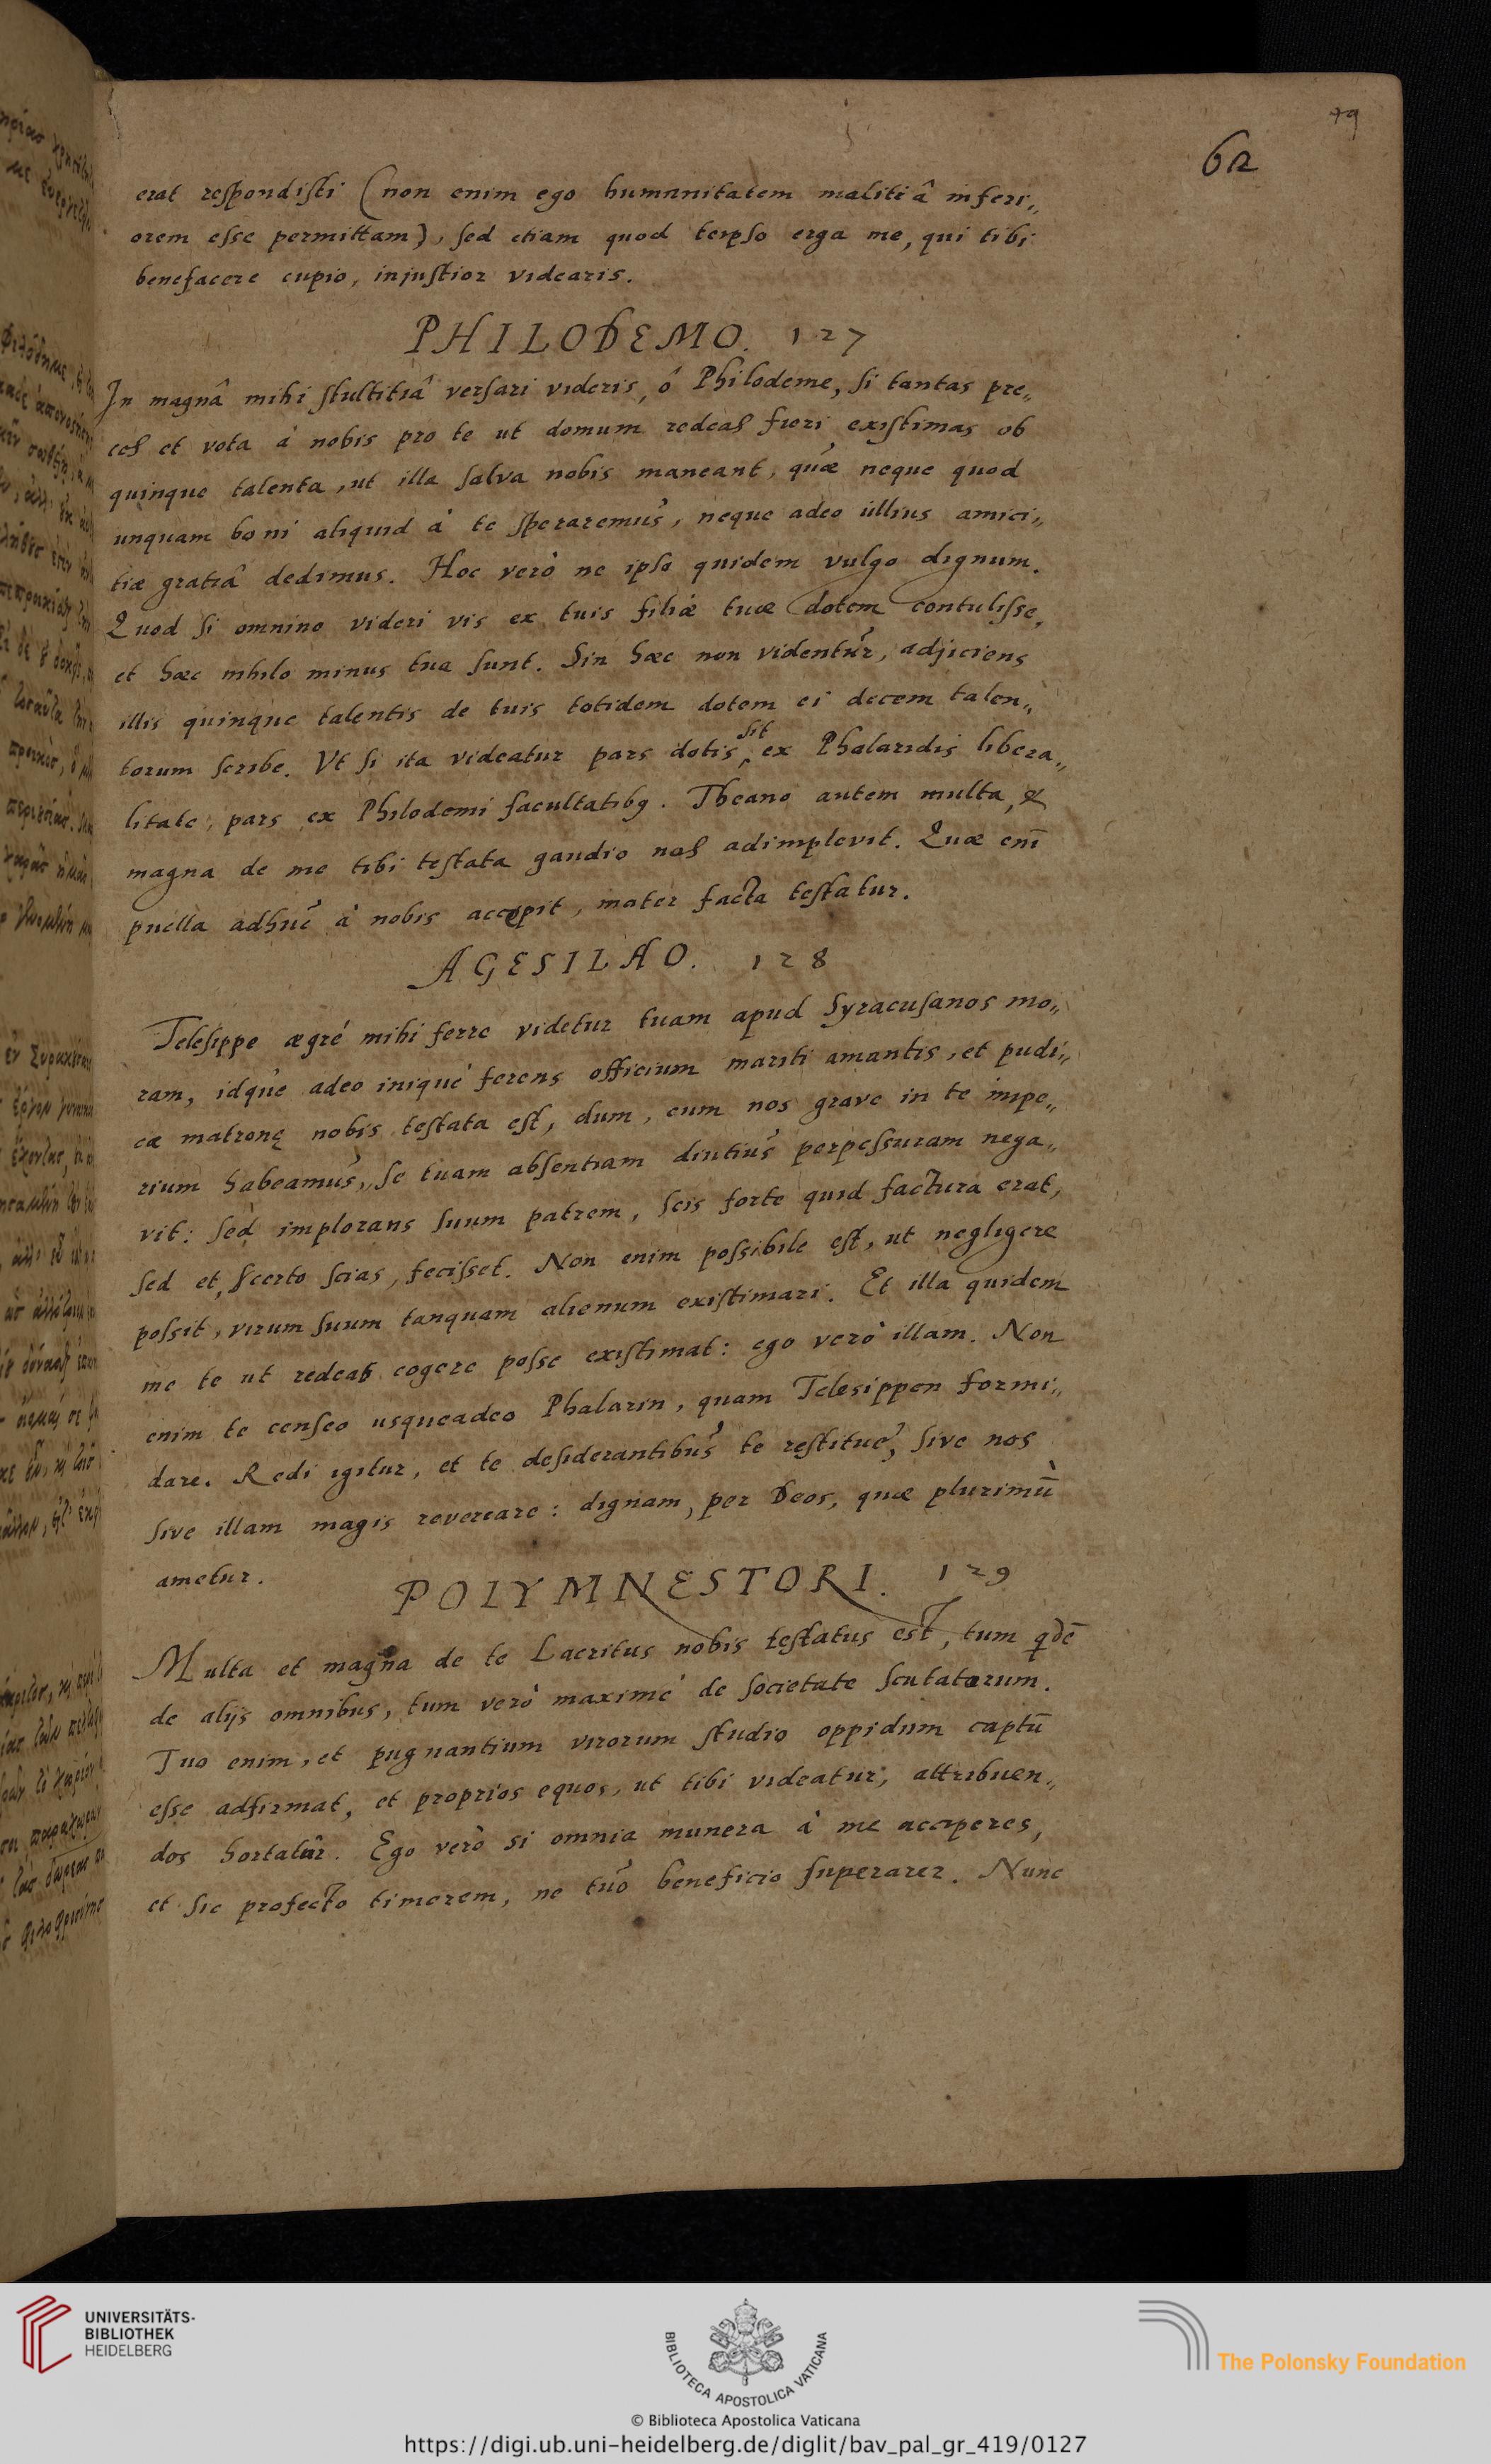 79
62
erat respondisti (non enim ego humanitatem malitiâ inferi„
orem esse permittam), sed etiam quod teipso erga me, qui tibi
benefacere cupio, injustior videaris.
PHILODEMO. 127
In magnâ mihi stultitiâ versari videris, ó Philodeme, si tantas pre„
ces et vota à nobis pro te ut domum redeas fieri existimas ob
quinque talenta, ut illa salva nobis maneant, quæ neque quod
unquam boni aliquid à te speraremus, neque adeo ullius amici„
tiæ gratiâ dedimus. Hoc verò ne ipso quidem vulgo dignum.
Quod si omnino videri vis ex tuis filiæ tuæ dotem contulisse,
et hæc nihilo minus tua sunt. Sin hæc non videntur, adjiciens
illis quinque talentis de tuis totidem dotem ei decem talen„
torum scribe. Ut si ita videatur pars dotis, sit ex Phalaridis libera„
litate, pars ex Philodemi facultatibꝯ. Theano autem multa, &
magna de me tibi testata gaudio nos adimplevit. Quæ eni̅
puella adhuc à nobis accepit, mater facta testatur.
AGESILAO. 128
Telesippe ægré mihi ferre videtur tuam apud Syracusanos mo„
ram, idque adeo iniqué ferens officium mariti amantis, et pudi„
cæ matronę nobis testata est, dum, cum nos grave in te impe„
rium habeamus, se tuam absentiam diutius perpessuram nega„
vit: sed implorans suum patrem, scis forte quid factura erat,
sed et, certo scias, fecisset. Non enim possibile est, ut negligere
possit, virum suum tanquam alienum existimari. Et illa quidem
me te ut redeas cogere posse existimat: ego verò illam. Non
enim te censeo usqueadeo Phalarin, quam Telesippen formi„
dare. Redi igitur, et te desiderantibus te restitue, sive nos
sive illam magis revereare: dignam, per Deos, quæ plurimu̅
ametur.
POLYMNESTORI. 129
Multa et magna de te Lacritus nobis testatus est, tum qde̅
de alijs omnibus, tum verò maximé de societate scutatorum.
Tuo enim, et pugnantium virorum studio oppidum captu̅
esse adfirmat, et proprios equos, ut tibi videatur, attribuen„
dos hortatur. Ego verò si omnia munera à me acciperes,
et sic profecto timerem, ne tuo beneficio superarer. Nunc
UNIVERSITÄTS-
BIBLIOTHEK
HEIDELBERG
BIBLIOTECA APOSTOLICA VATICANA
The Polonsky Foundation
© Biblioteca Apostolica Vaticana
https://digi.ub.uni-heidelberg.de/diglit/bav_pal_gr_419/0127